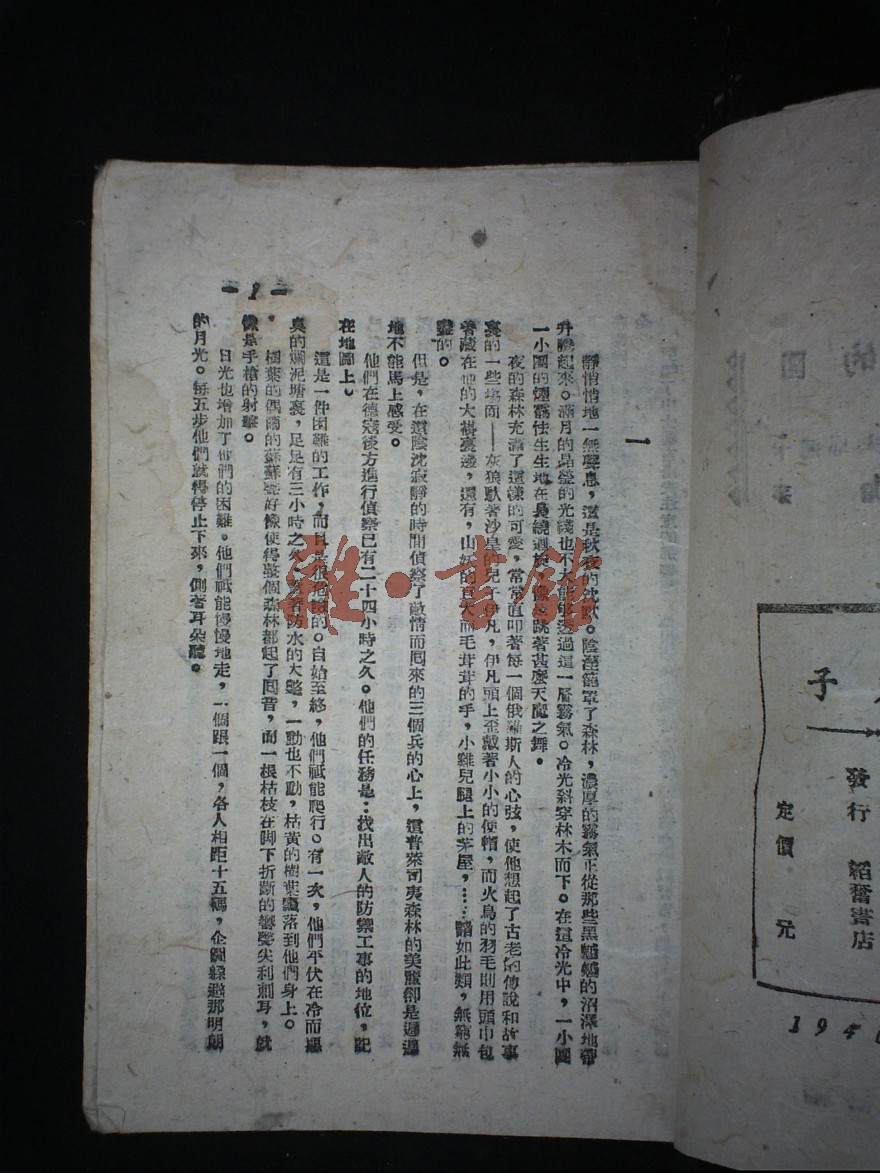 一
靜悄悄地一無聲息，這是秋夜的沈默。陰溼籠罩了森林，濃厚的霧氣正從那些黑魆魆的沼澤地帶
升騰起來。滿月的晶瑩的光綫也不大能够透過這一層霧氣。冷光斜穿林木而下。在這冷光中，一小團
一小團的煙霧怯生生地在繚繞迴旋，像在跳著甚麼天魔之舞。
夜的森林充滿了這樣的可愛，常常直叩著每一個俄羅斯人的心弦，使他想起了古老的傳說和故事
裏的一些場面——灰狼馱著沙皇的兒子伊凡，伊凡頭上歪戴著小小的便帽，而火鳥的羽毛則用頭巾包
著藏在他的大褂裏邊，還有，山妖的巨大而毛茸茸的手，小雞兒腿上的茅屋，……諸如此類，無窮無
盡的。
但是，在這陰沈寂靜的時間偵察了敵情而囘來的三個兵的心上，這普萊司夷森林的美麗卻是遲遲
地不能馬上感受。
他們在德寇後方進行偵察已有二十四小時之久。他們的任務是：找出敵人的防禦工事的地位，記
在地圖上。
這是一件困難的工作，而且是很危險的。自始至終，他們祗能爬行。有一次，他們平伏在冷而
臭的爛泥塘裏，足足有三小時之久，蓋著防水的大氅，一動也不動，枯黃的樹葉飄落到他們身上。
樹葉的偶爾的蘇蘇聲好像使得整個森林都起了囘音，而一根枯枝在脚下折斷的響聲尖利刺耳，就
像是手槍的射擊。
月光也增加了他們的困難。他們祗能慢慢地走，一個跟一個，各人相距十五碼，企圖躲避那明朗
的月光。每五步他們就得停止下來，側著耳朵聽。
—1—
子
發行 韜奮書店
定價 元
194
雜·書館